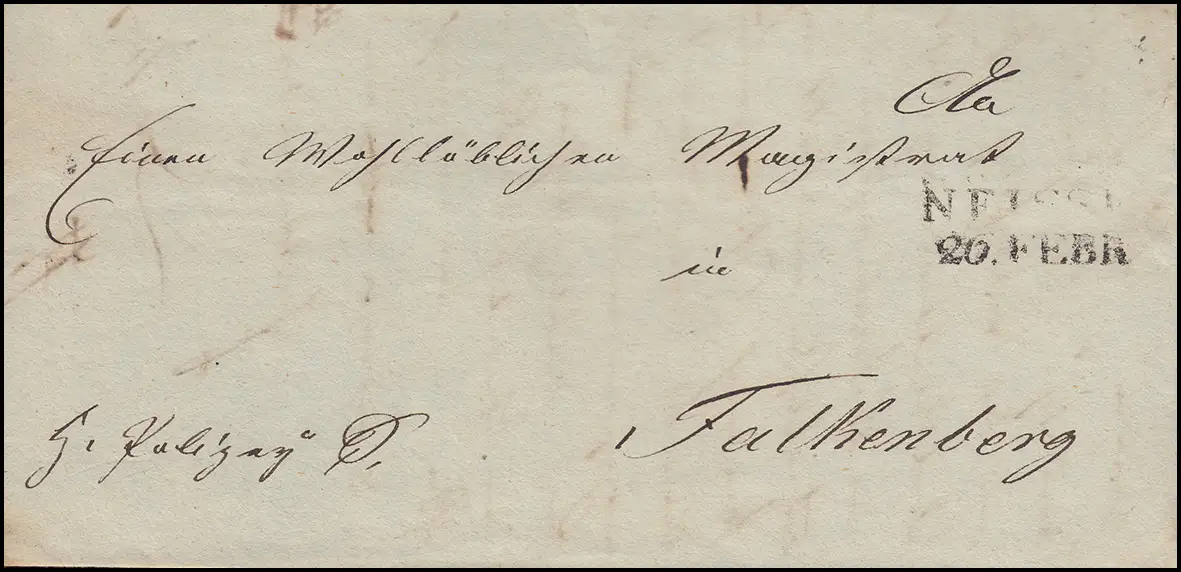 An
Einen Wohllöblichen Magistrat
NEISSE
20. FEBR
in
Falkenberg
H. Polizey S.